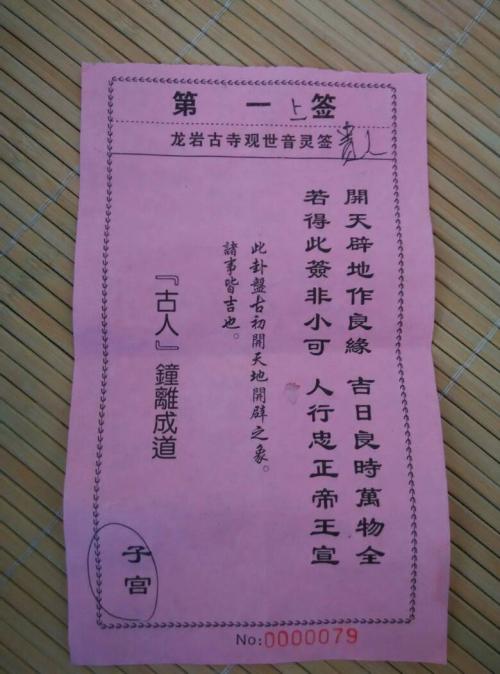 第一上签
龙岩古寺观世音灵签
貴人
開天辟地作良緣 吉日良時萬物全
若得此簽非小可 人行忠正帝王宣
此卦盤古初開天地開辟之象。
諸事皆吉也。
『古人』鐘離成道
子宫
No:0000079